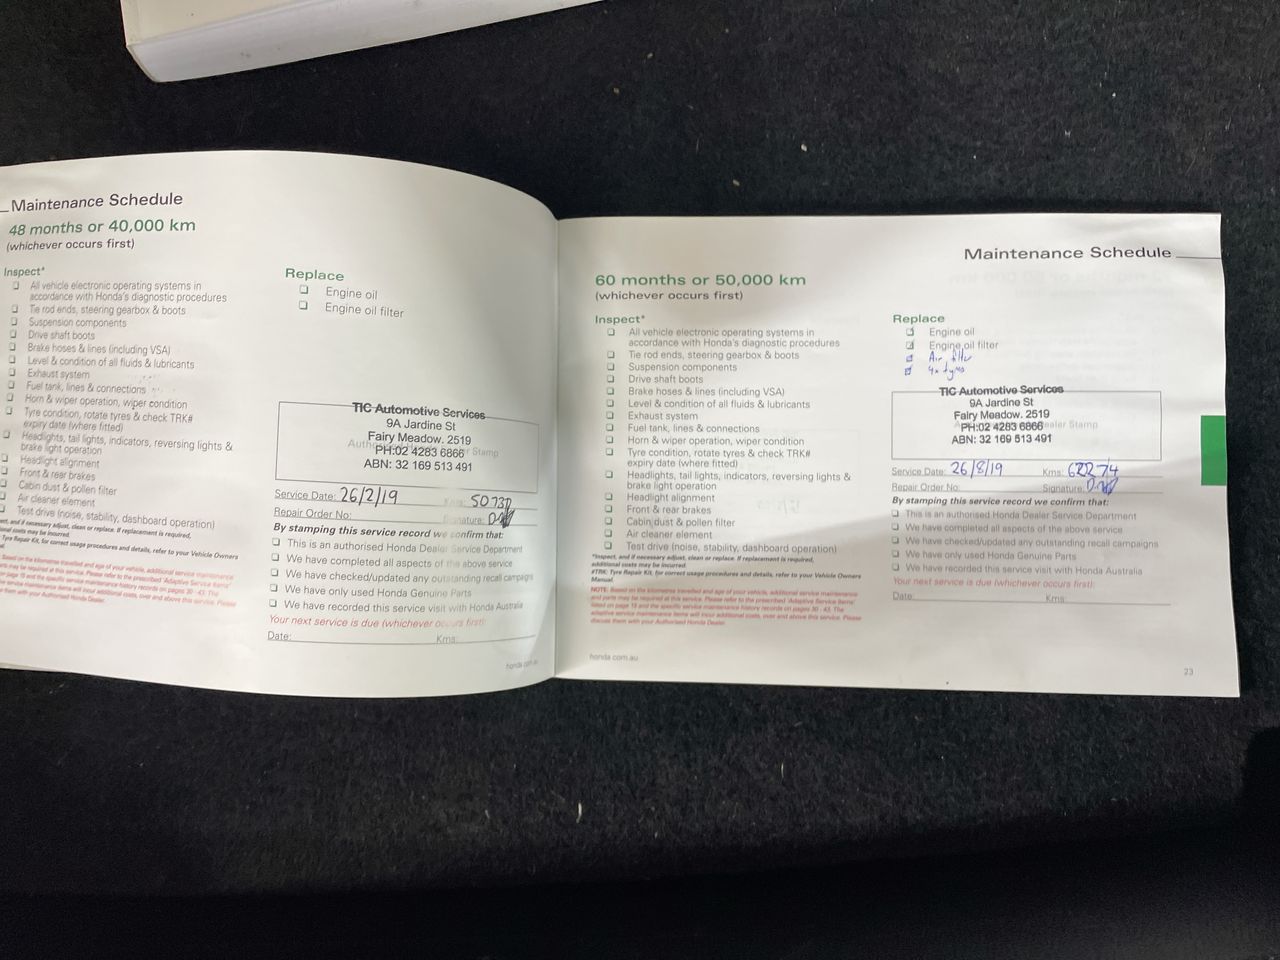 Maintenance Schedule
48 months or 40,000 km
(whichever occurs first)
Inspect*
All vehicle electronic operating systems in
accordance with Honda's diagnostic procedures
Tie rod ends, steering gearbox & boots
Suspension components
Drive shaft boots
Brake hoses & lines (including VSA)
Level & condition of all fluids & lubricants
Exhaust system
Fuel tank, lines & connections
Horn & wiper operation, wiper condition
Tyre condition, rotate tyres & check TRK#
expiry date (where fitted)
Headlights, tail lights, indicators, reversing lights &
brake light operation
Headlight alignment
Front & rear brakes
Cabin dust & pollen filter
Air cleaner element
Test drive (noise, stability, dashboard operation)
Replace
Engine oil
Engine oil filter
TIC Automotive Services
9A Jardine St
Fairy Meadow. 2519
PH:02 4283 6866
ABN: 32 169 513 491
Service Date: 26/2/19
Repair Order No: Signature:
By stamping this service record we confirm that:
This is an authorised Honda Dealer Service Department
We have completed all aspects of the above service
We have checked/updated any outstanding recall campaigns
We have only used Honda Genuine Parts
We have recorded this service visit with Honda Australia
Your next service is due (whichever occurs first):
Date: Kms:
honda.com.au
Maintenance Schedule
60 months or 50,000 km
(whichever occurs first)
Inspect*
All vehicle electronic operating systems in
accordance with Honda's diagnostic procedures
Tie rod ends, steering gearbox & boots
Suspension components
Drive shaft boots
Brake hoses & lines (including VSA)
Level & condition of all fluids & lubricants
Exhaust system
Fuel tank, lines & connections
Horn & wiper operation, wiper condition
Tyre condition, rotate tyres & check TRK#
expiry date (where fitted)
Headlights, tail lights, indicators, reversing lights &
brake light operation
Headlight alignment
Front & rear brakes
Cabin dust & pollen filter
Air cleaner element
Test drive (noise, stability, dashboard operation)
*Inspect, and if necessary adjust, clean or replace. If replacement is required,
additional costs may be incurred.
#TRK: Tyre Repair Kit, for correct usage procedures and details, refer to your Vehicle Owners
Manual.
NOTE: Based on the kilometres travelled and age of your vehicle, additional service maintenance
and parts may be required at this service. Please refer to the prescribed 'Adaptive Service Items'
listed on page 15 and the specific service maintenance history records on pages 30 - 43. The
adaptive service maintenance items will incur additional costs, over and above this service. Please
discuss them with your Authorised Honda Dealer.
honda.com.au
Replace
Engine oil
Engine oil filter
Air filter
4x tyres
TIC Automotive Services
9A Jardine St
Fairy Meadow. 2519
PH:02 4283 6866
ABN: 32 169 513 491
Service Date: 26/8/19 Kms: 62274
Repair Order No: Signature:
By stamping this service record we confirm that:
This is an authorised Honda Dealer Service Department
We have completed all aspects of the above service
We have checked/updated any outstanding recall campaigns
We have only used Honda Genuine Parts
We have recorded this service visit with Honda Australia
Your next service is due (whichever occurs first):
Date: Kms:
23